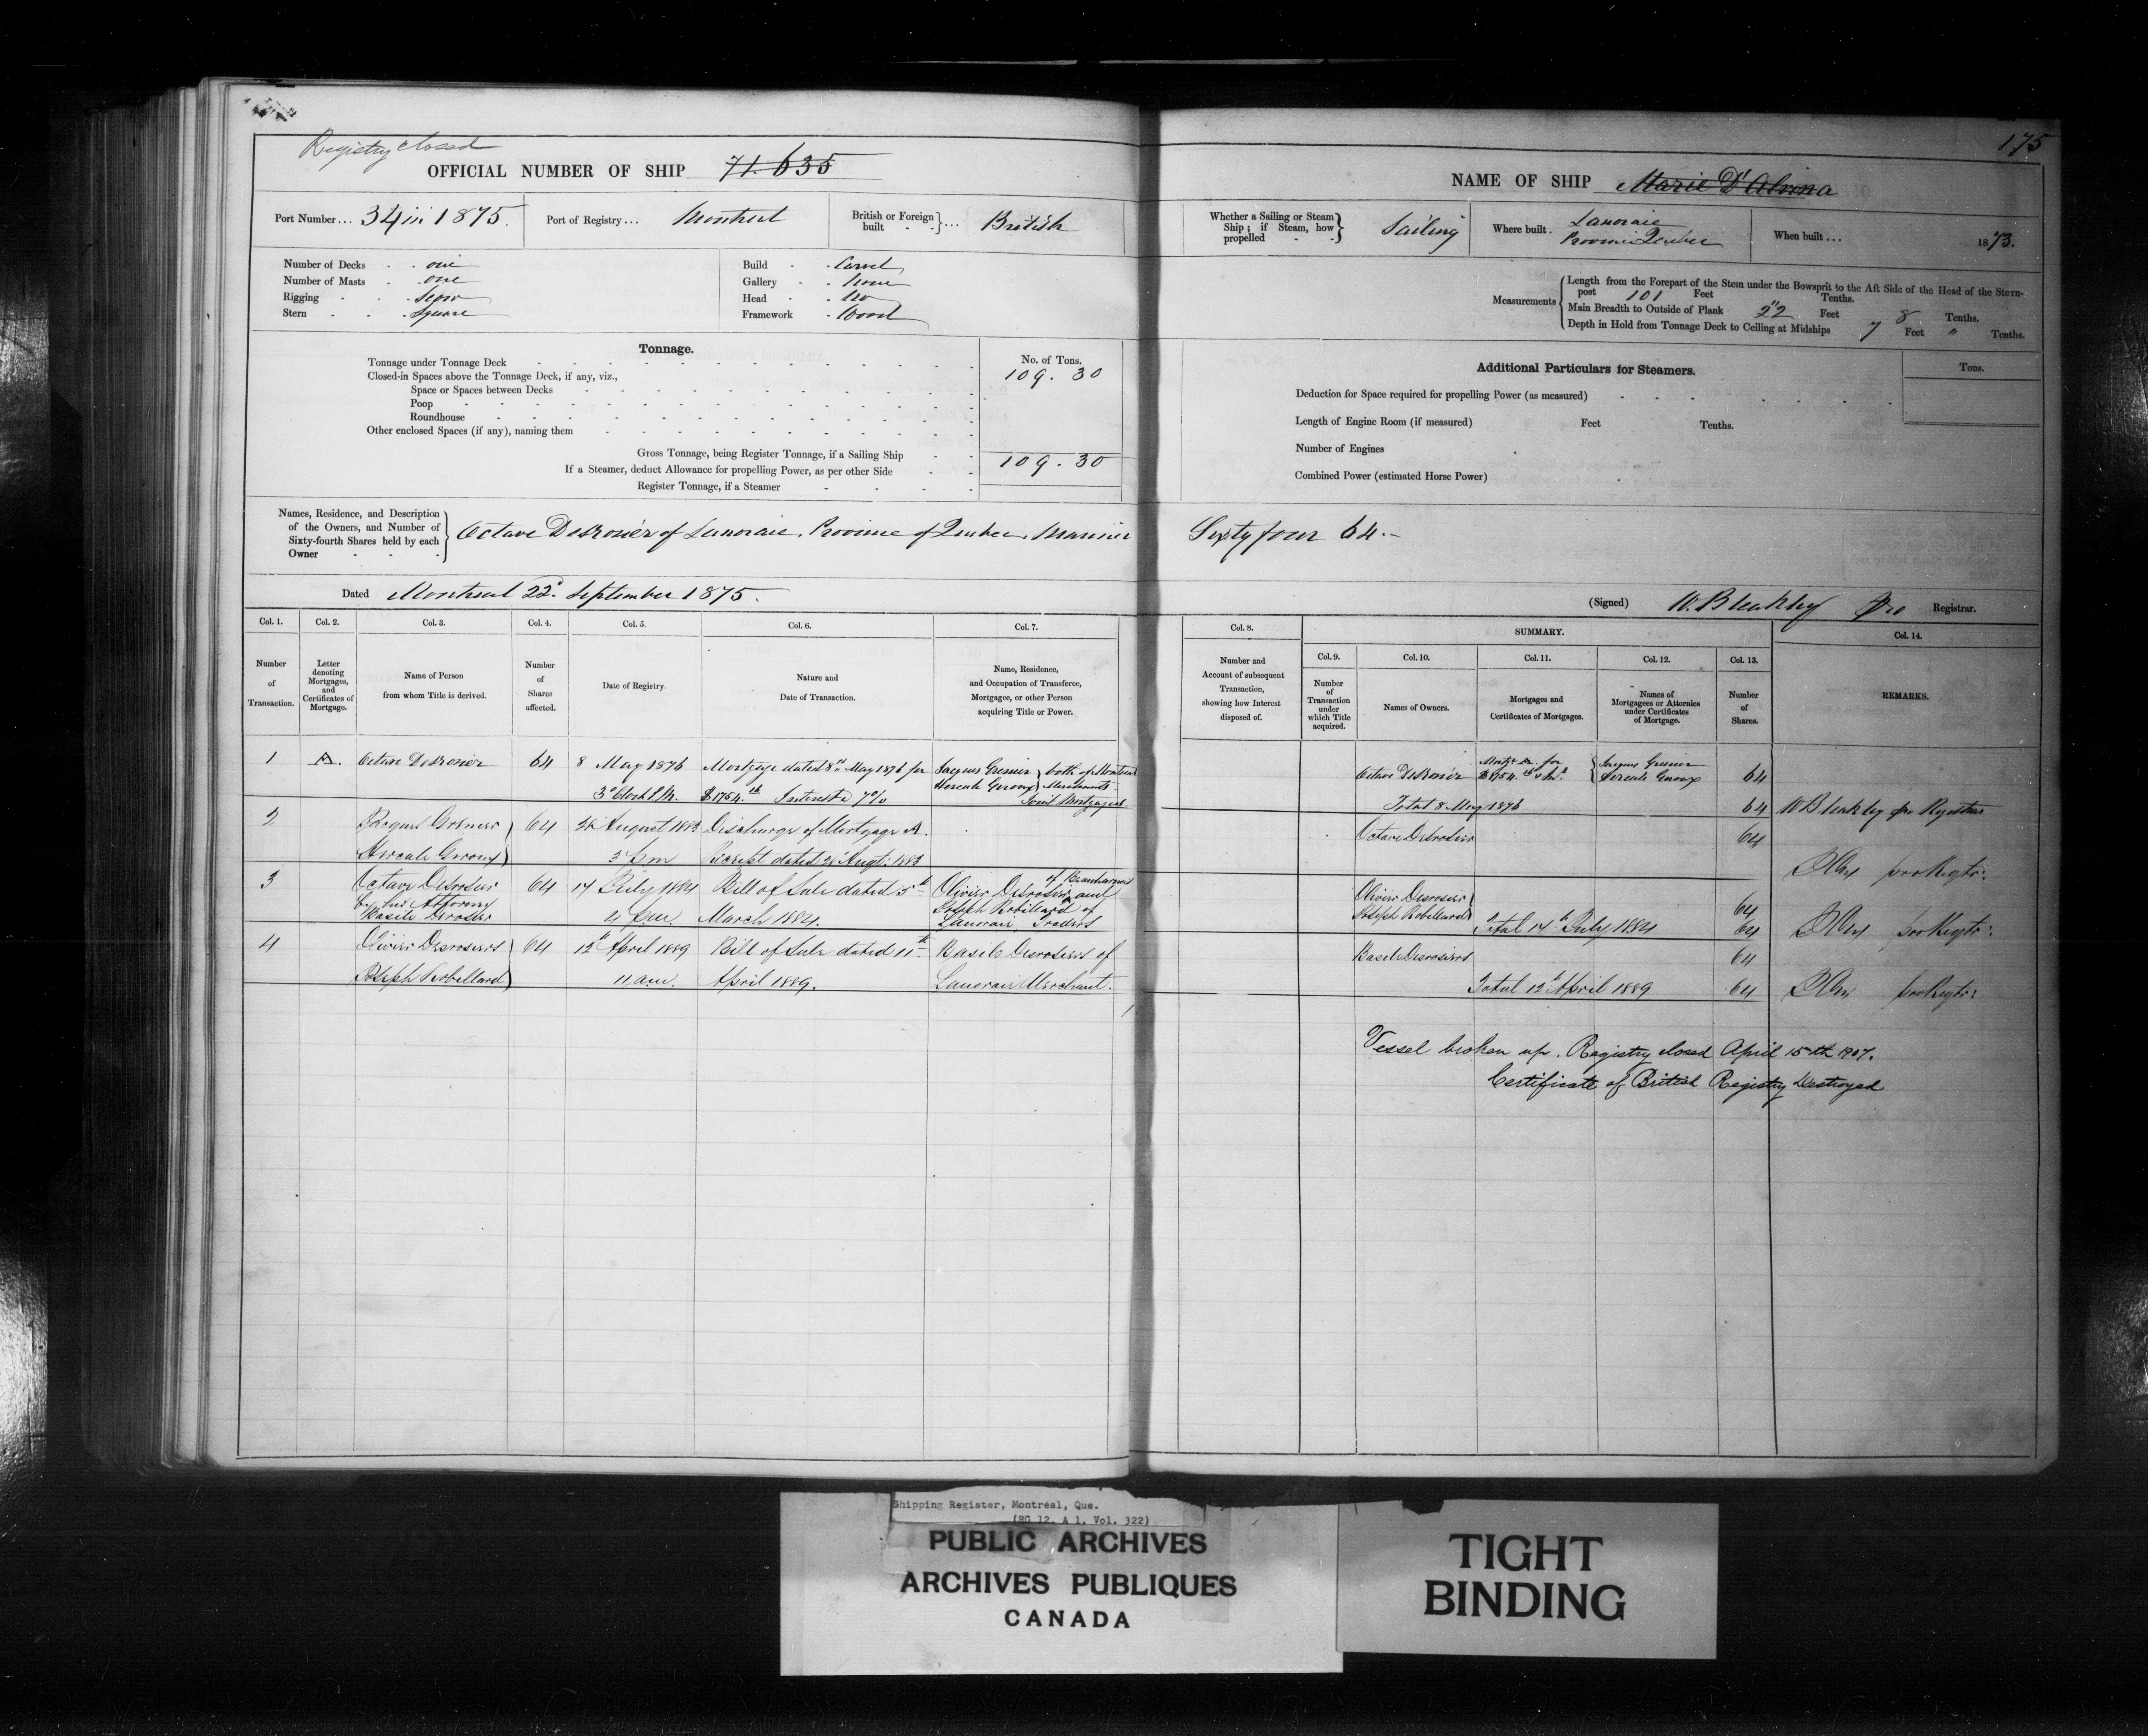 175
Registry closed
OFFICIAL NUMBER OF SHIP 71.635
NAME OF SHIP Marie D'Alvina
Port Number... 34 in 1875. Port of Registry... Montreal British or Foreign built ... British
Whether a Sailing or Steam Ship; if Steam, how propelled Sailing Where built. Lanoraie Province Quebec When built... 1873.
Number of Decks one
Number of Masts one
Rigging Scow
Stern Square
Build Carvel
Gallery None
Head No
Framework Wood
Measurements
Length from the Forepart of the Stem under the Bowsprit to the Aft Side of the Head of the Stern-
post 101 Feet " Tenths.
Main Breadth to Outside of Plank 22 Feet 8 Tenths.
Depth in Hold from Tonnage Deck to Ceiling at Midships 7 Feet " Tenths.
Tonnage.
No. of Tons.
Tonnage under Tonnage Deck 109.30
Closed-in Spaces above the Tonnage Deck, if any, viz.,
Space or Spaces between Decks
Poop
Roundhouse
Other enclosed Spaces (if any), naming them
Gross Tonnage, being Register Tonnage, if a Sailing Ship 109.30
If a Steamer, deduct Allowance for propelling Power, as per other Side
Register Tonnage, if a Steamer
Additional Particulars for Steamers.
Tons.
Deduction for Space required for propelling Power (as measured)
Length of Engine Room (if measured) Feet Tenths.
Number of Engines
Combined Power (estimated Horse Power)
Names, Residence, and Description
of the Owners, and Number of
Sixty-fourth Shares held by each
Owner
Octave Desrosier of Lanoraie, Province of Quebec, Mariner Sixty four 64.-
Dated Montreal 22d September 1875.
(Signed) W. Bleakley pro Registrar.
Col. 1. Col. 2. Col. 3. Col. 4. Col. 5. Col. 6. Col. 7. Col. 8. SUMMARY. Col. 14.
Col. 9. Col. 10. Col. 11. Col. 12. Col. 13.
Number of Transaction.
Letter denoting Mortgages, and Certificates of Mortgage.
Name of Person from whom Title is derived.
Number of Shares affected.
Date of Registry.
Nature and Date of Transaction.
Name, Residence, and Occupation of Transferee, Mortgagee, or other Person acquiring Title or Power.
Number and Account of subsequent Transaction, showing how Interest disposed of.
Number of Transaction under which Title acquired.
Names of Owners.
Mortgages and Certificates of Mortgages.
Names of Mortgagees or Attornies under Certificates of Mortgage.
Number of Shares.
REMARKS.
1 A. Octave Desrosier 64 8 May 1876 Mortgage dated 8th May 1876 for Jacques Grenier both of Montreal
3 o'Clock P.M. $1754. Interest @ 7% Hercule Geroux Merchants Joint Mortgagees
Octave Desrosier Mortge A. for $1754. Jacques Grenier Hercule Geroux 64
Total 8 May 1876 64 W Bleakley pro Registrar
2 Jacques Grenier 64 August 1883 Discharge of Mortgage A.
Hercule Geroux 3 pm Receipt dated Augt. 1883
Octave Desrosier 64
pro Regtr:
3 Octave Desrosier 64 14 July 1884 Bill of Sale dated 5th Olivier Desrosier of Beauharnois and
by his Attorney Basile Desrosier 4 pm March 1884. Joseph Robillard of Lanoraie Traders
Olivier Desrosier
Joseph Robillard 64
Total 14th July 1884 64 pro Regtr:
4 Olivier Desrosiers 64 12th April 1889 Bill of Sale dated 11th Basile Desrosiers of
Joseph Robillard 11 am. April 1889. Lanoraie Merchant.
Basile Desrosiers 64
Total 12th April 1889 64 pro Regtr:
Vessel broken up. Registry closed April 15th 1907.
Certificate of British Registry Destroyed
Shipping Register, Montreal, Que.
(RG 12, A 1, Vol. 322)
PUBLIC ARCHIVES
ARCHIVES PUBLIQUES
CANADA
TIGHT
BINDING